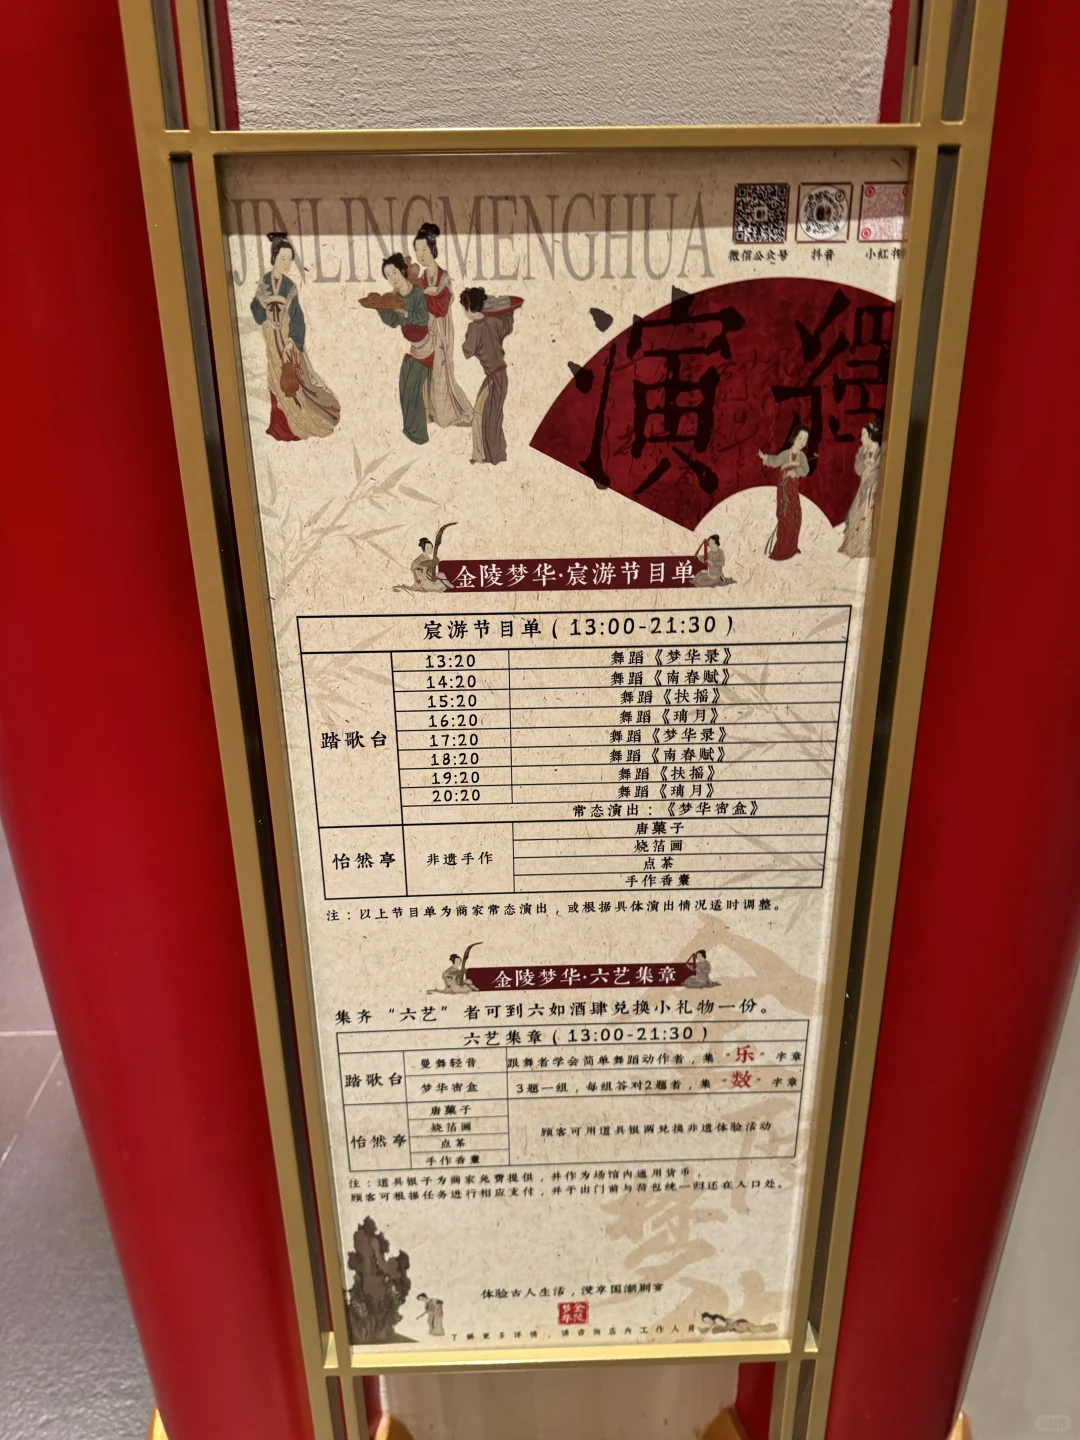 JINLINGMENGHUA
微信公众号 抖音 小红书
演绎
金陵梦华·宸游节目单
宸游节目单(13:00-21:30)
踏歌台
13:20 舞蹈《梦华录》
14:20 舞蹈《南春赋》
15:20 舞蹈《扶摇》
16:20 舞蹈《璃月》
17:20 舞蹈《梦华录》
18:20 舞蹈《南春赋》
19:20 舞蹈《扶摇》
20:20 舞蹈《璃月》
常态演出:《梦华密盒》
怡然亭
非遗手作
唐菓子
烧箔画
点茶
手作香囊
注:以上节目单为商家常态演出,或根据具体演出情况适时调整。
金陵梦华·六艺集章
集齐“六艺”者可到六如酒肆兑换小礼物一份。
六艺集章(13:00-21:30)
踏歌台
曼舞轻音 跟舞者学会简单舞蹈动作者,集“乐”字章
梦华密盒 3题一组,每组答对2题者,集“数”字章
怡然亭
唐菓子
烧箔画
点茶
手作香囊
顾客可用道具银两兑换非遗体验活动
注:道具银子为商家免费提供,并作为场馆内通用货币,
顾客可根据任务进行相应支付,并于出门前与荷包统一归还在入口处。
体验古人生活,漫享国潮剧宴
金陵梦华
了解更多详情,请咨询店内工作人员